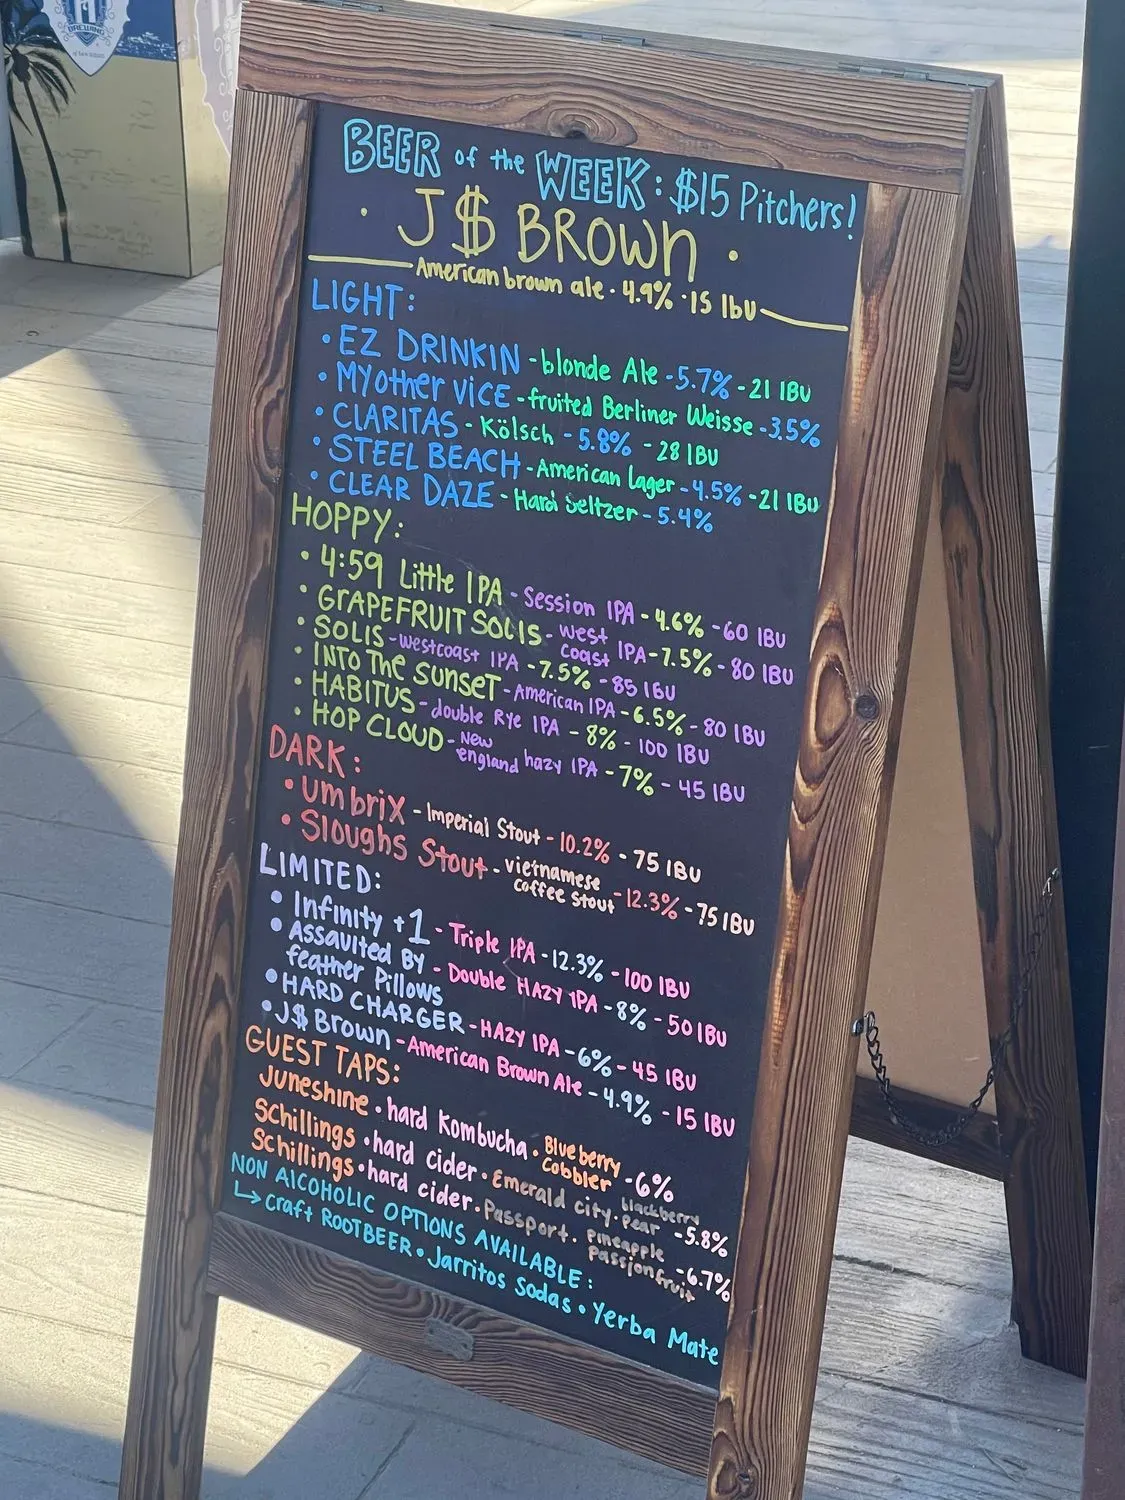 BREWING
BEER of the WEEK: $15 Pitchers!
· J$ BROWN ·
American brown ale · 4.9% · 15 Ibu
LIGHT:
• EZ DRINKIN - blonde Ale - 5.7% - 21 IBU
• MYother VICE - fruited Berliner Weisse - 3.5%
• CLARITAS - Kölsch - 5.8% - 28 IBU
• STEEL BEACH - American lager - 4.5% - 21 IBU
• CLEAR DAZE - Hard Seltzer - 5.4%
HOPPY:
• 4:59 Little IPA - Session IPA - 4.6% - 60 IBU
• GRAPEFRUIT SOLIS - west coast IPA - 7.5% - 80 IBU
• SOLIS - westcoast IPA - 7.5% - 85 IBU
• INTO The SUNSET - American IPA - 6.5% - 80 IBU
• HABITUS - double Rye IPA - 8% - 100 IBU
• HOP CLOUD - New england hazy IPA - 7% - 45 IBU
DARK:
• umbriX - Imperial Stout - 10.2% - 75 IBU
• Sloughs Stout - vietnamese coffee stout - 12.3% - 75 IBU
LIMITED:
• Infinity +1 - Triple IPA - 12.3% - 100 IBU
• Assaulted By
feather Pillows - Double HAZY IPA - 8% - 50 IBU
• HARD CHARGER - HAZY IPA - 6% - 45 IBU
• J$ Brown - American Brown Ale - 4.9% - 15 IBU
GUEST TAPS:
Juneshine • hard Kombucha • Blueberry Cobbler - 6%
Schillings • hard cider • Emerald city • blackberry pear - 5.8%
Schillings • hard cider • Passport • pineapple Passionfruit - 6.7%
NON AlCOHOLIC OPTIONS AVAILABLE:
↳ craft ROOTBEER • Jarritos Sodas • Yerba Mate